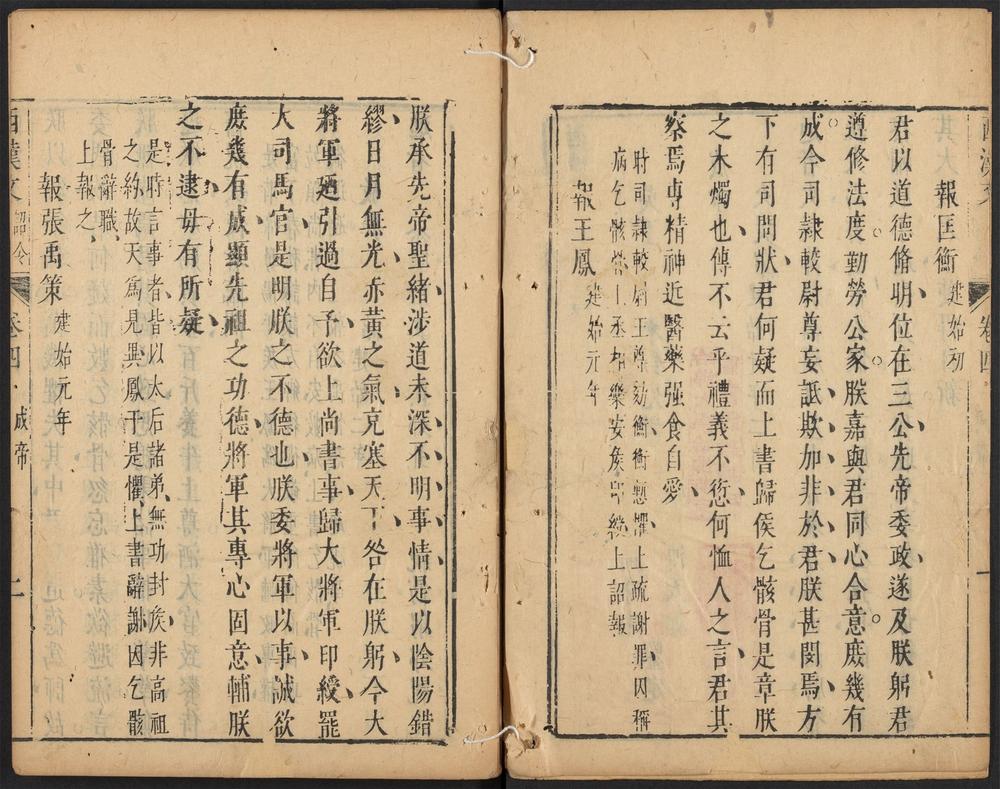 西漢文 卷四
報匡衡 建始初
君以道德脩明位在三公先帝委政遂及朕躬君
遵修法度勤勞公家朕嘉與君同心合意庶幾有
成今司隷較尉尊妄詆欺加非於君朕甚閔焉方
下有司問狀君何疑而上書歸侯乞骸骨是章朕
之未燭也傳不云乎禮義不愆何恤人之言君其
察焉專精神近醫藥强食自愛
時司隷較尉王尊劾衡衡慙懼上疏謝罪因稱
病乞骸骨上丞相樂安侯印綬上詔報
報王鳳 建始元年
朕承先帝聖緒涉道未深不明事情是以陰陽錯
繆日月無光赤黃之氣充塞天下咎在朕躬今大
將軍廼引過自予欲上尚書事歸大將軍印綬罷
大司馬官是明朕之不德也朕委將軍以事誠欲
庶幾有成顯先祖之功德將軍其專心固意輔朕
之不逮毋有所疑
是時言事者皆以太后諸弟無功封侯非高祖
之約故天爲見異鳳于是懼上書辭謝因乞骸
骨辭職
上報之
報張禹策 建始元年
西漢文 詔令 卷四 成帝